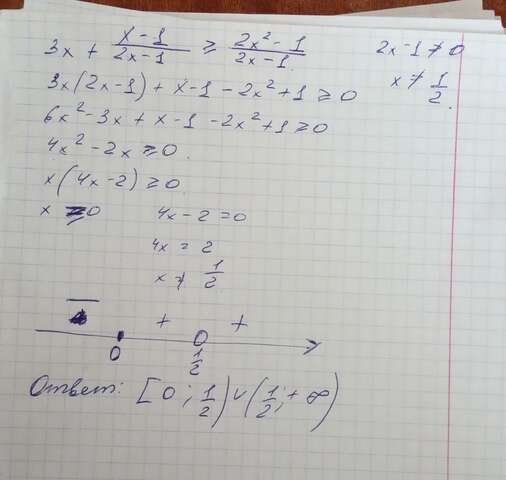 3x + (x-1)/(2x-1) ≥ (2x² - 1)/(2x-1)
2x-1 ≠ 0
x ≠ 1/2.
3x(2x-1) + x-1 - 2x²+1 ≥ 0
6x² - 3x + x - 1 - 2x² + 1 ≥ 0
4x² - 2x ≥ 0.
x(4x-2) ≥ 0
x ≥ 0
4x - 2 = 0
4x = 2
x ≠ 1/2
- + +
0 1/2
Ответ: [0; 1/2) ∪ (1/2; +∞)